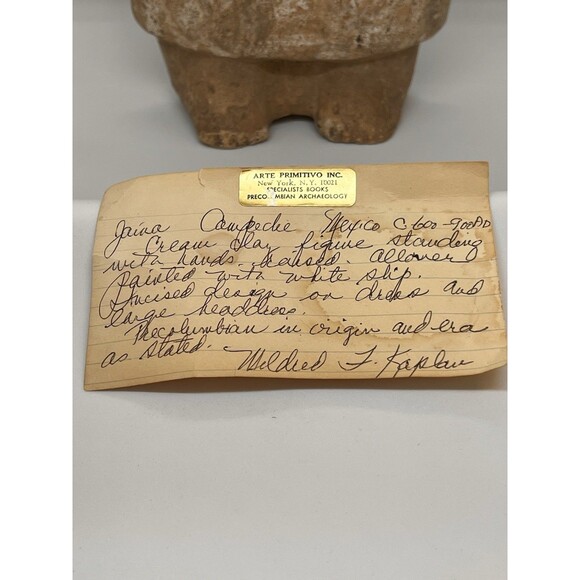 ARTE PRIMITIVO INC.
New York, N.Y. 10021
SPECIALISTS BOOKS
PRECOLUMBIAN ARCHAEOLOGY
Jaina Campeche Mexico C 600-900AD
Cream clay figure standing
with hands raised allover
painted with white slip.
Incised design on dress and
large headdress.
Precolumbian in origin and era
as stated.
Mildred F. Kaplan